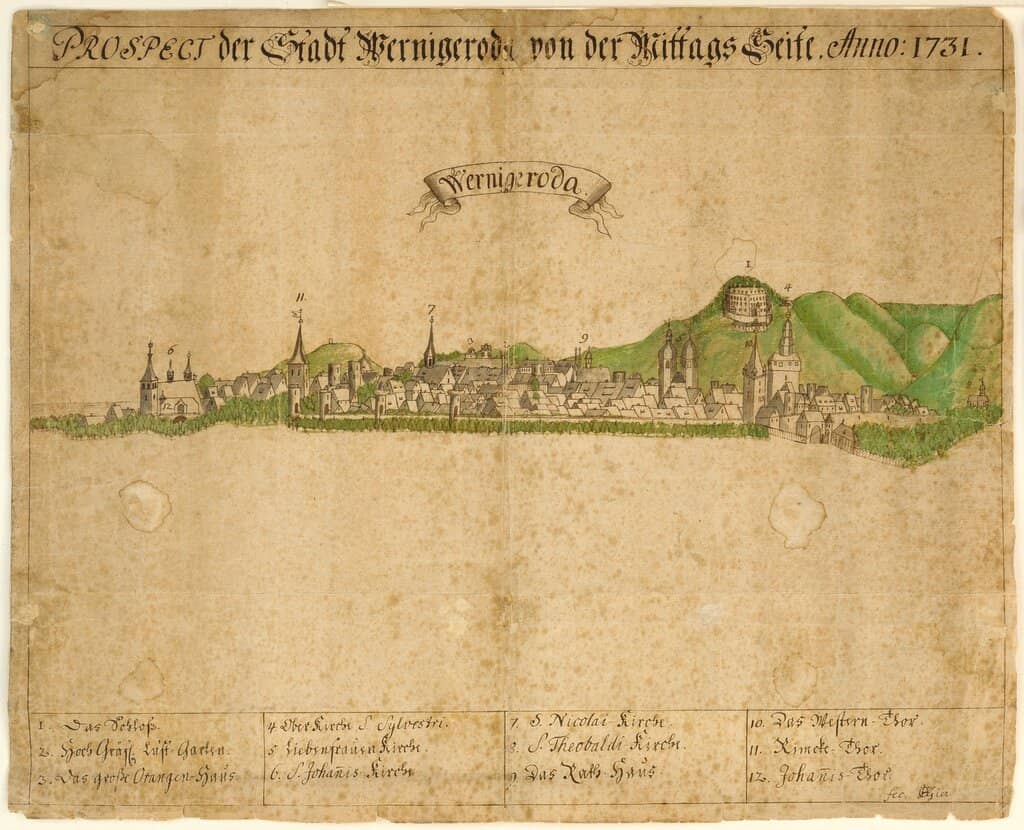 PROSPECT der Stadt Wernigeroda von der Mittags Seite. Anno: 1731.
Wernigeroda.
1
4
11.
7
6
9
10
1. Das Schloß.
2. Hoch Gräfl. Lust-Garten.
3. Das große Orangen-Haus.
4 Ober Kirche S Sylvestri.
5 Liebenfrauen Kirche.
6. S. Johan̄is-Kirche
7. S. Nicolai-Kirche.
8. S. Theobaldi-Kirche.
9 Das Rath-Haus.
10. Das Western-Thor.
11. Rimcke-Thor.
12. Johan̄is-Thor.
fec.